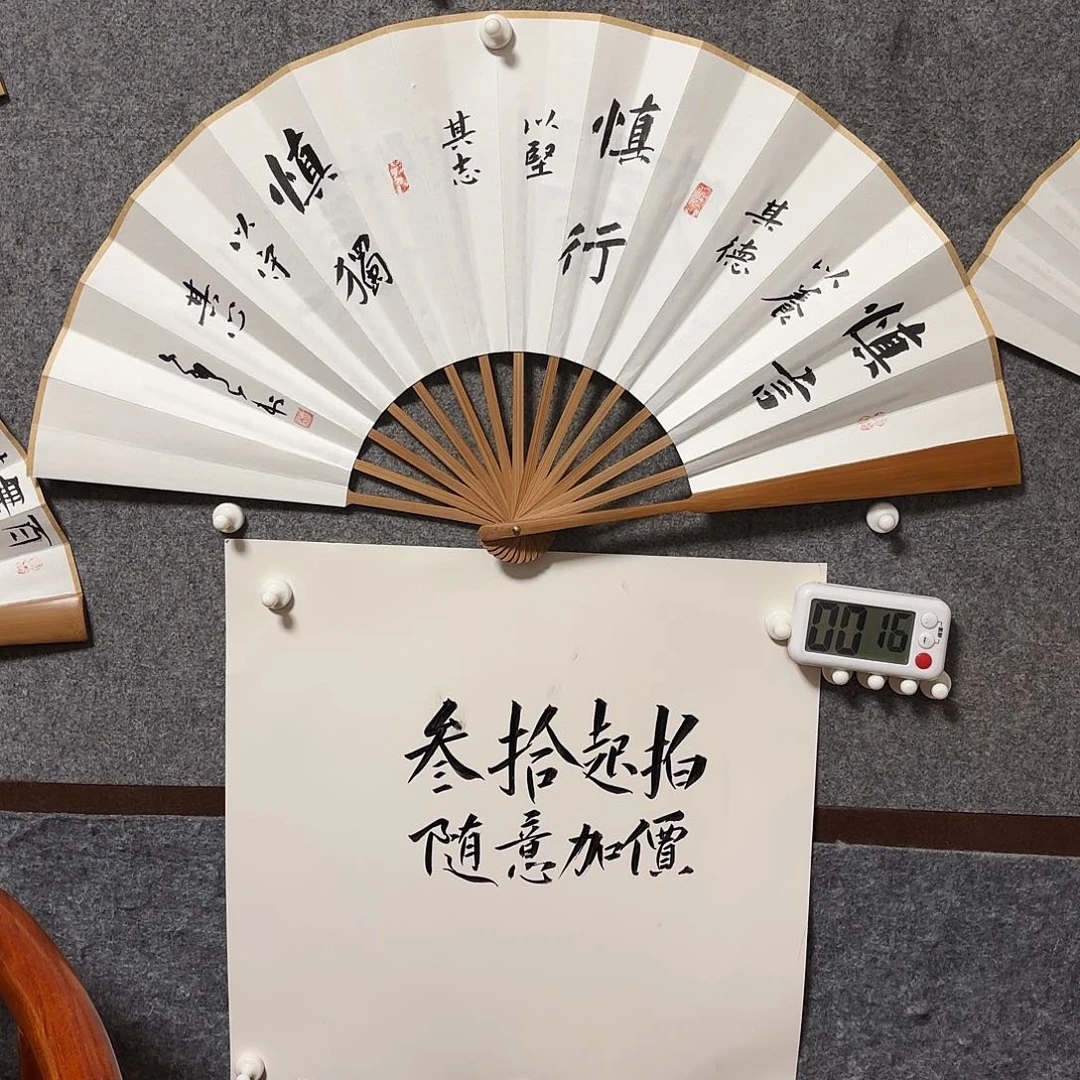 慎言
以養
其德
慎行
以堅
其志
慎獨
以守
其心
叁拾起拍
隨意加價
00 16